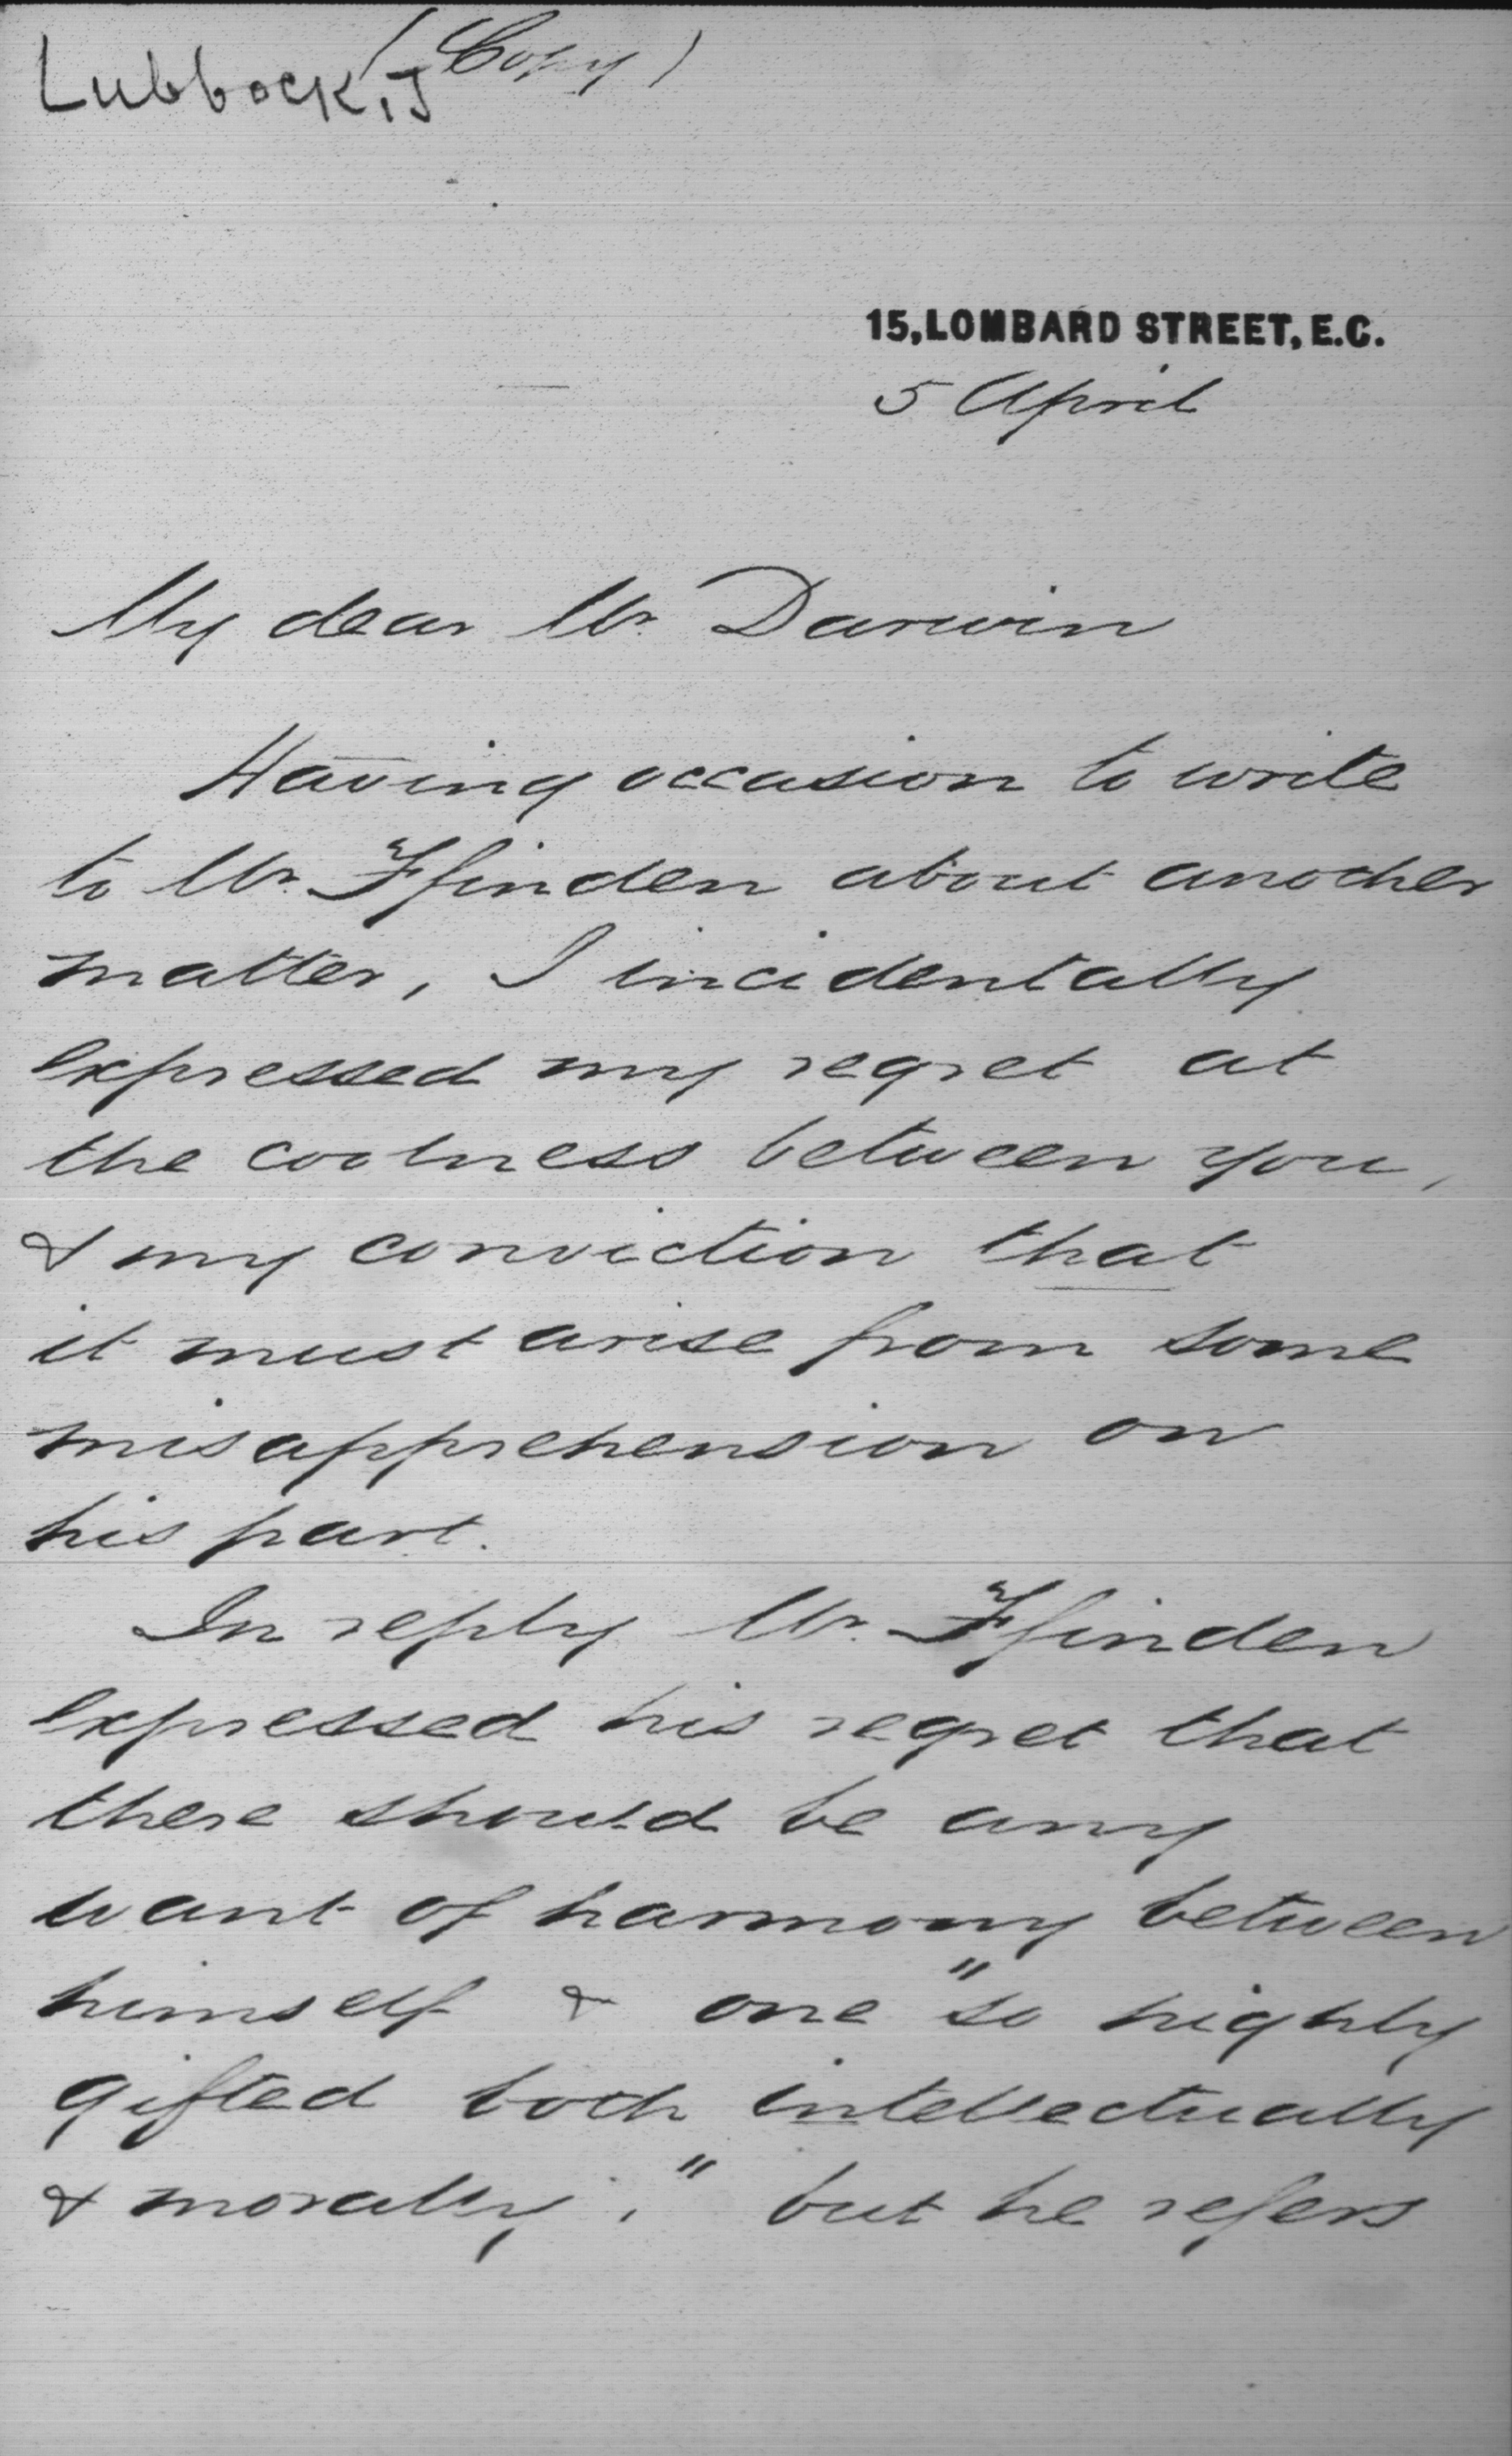 (Copy)
Lubbock, J
15, LOMBARD STREET, E.C.
5 April
My dear Mr. Darwin
Having occasion to write
to Mr. Ffinden about another
matter, I incidentally
expressed my regret at
the coolness between you,
& my conviction that
it must arise from some
misapprehension on
his part.
In reply Mr. Ffinden
expressed his regret that
there should be any
want of harmony between
himself & one "so highly
gifted both intellectually
& morally," but he refers